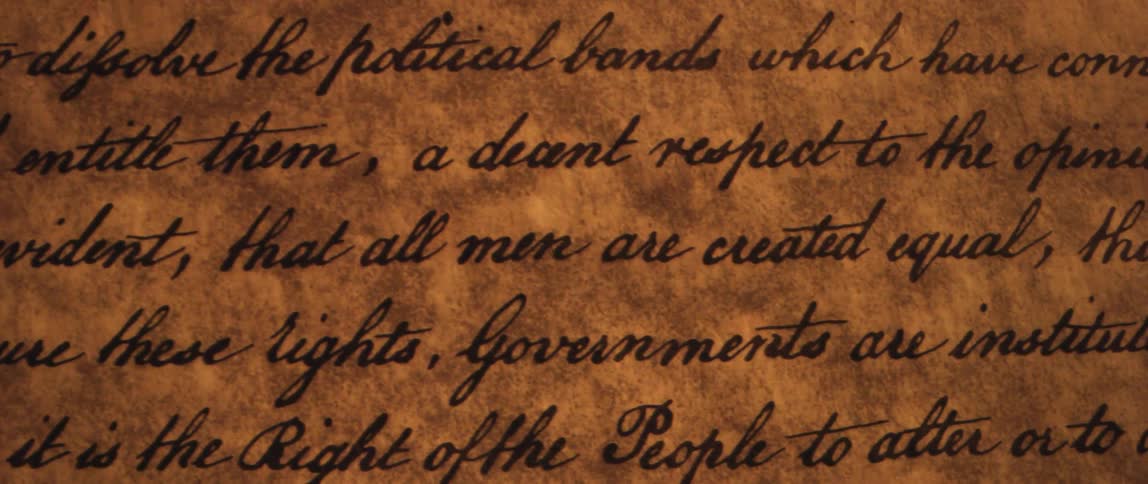 to diſsolve the political bands which have conn
entitle them, a decent respect to the opini
evident, that all men are created equal, tha
ure these rights, Governments are institut
it is the Right of the People to alter or to